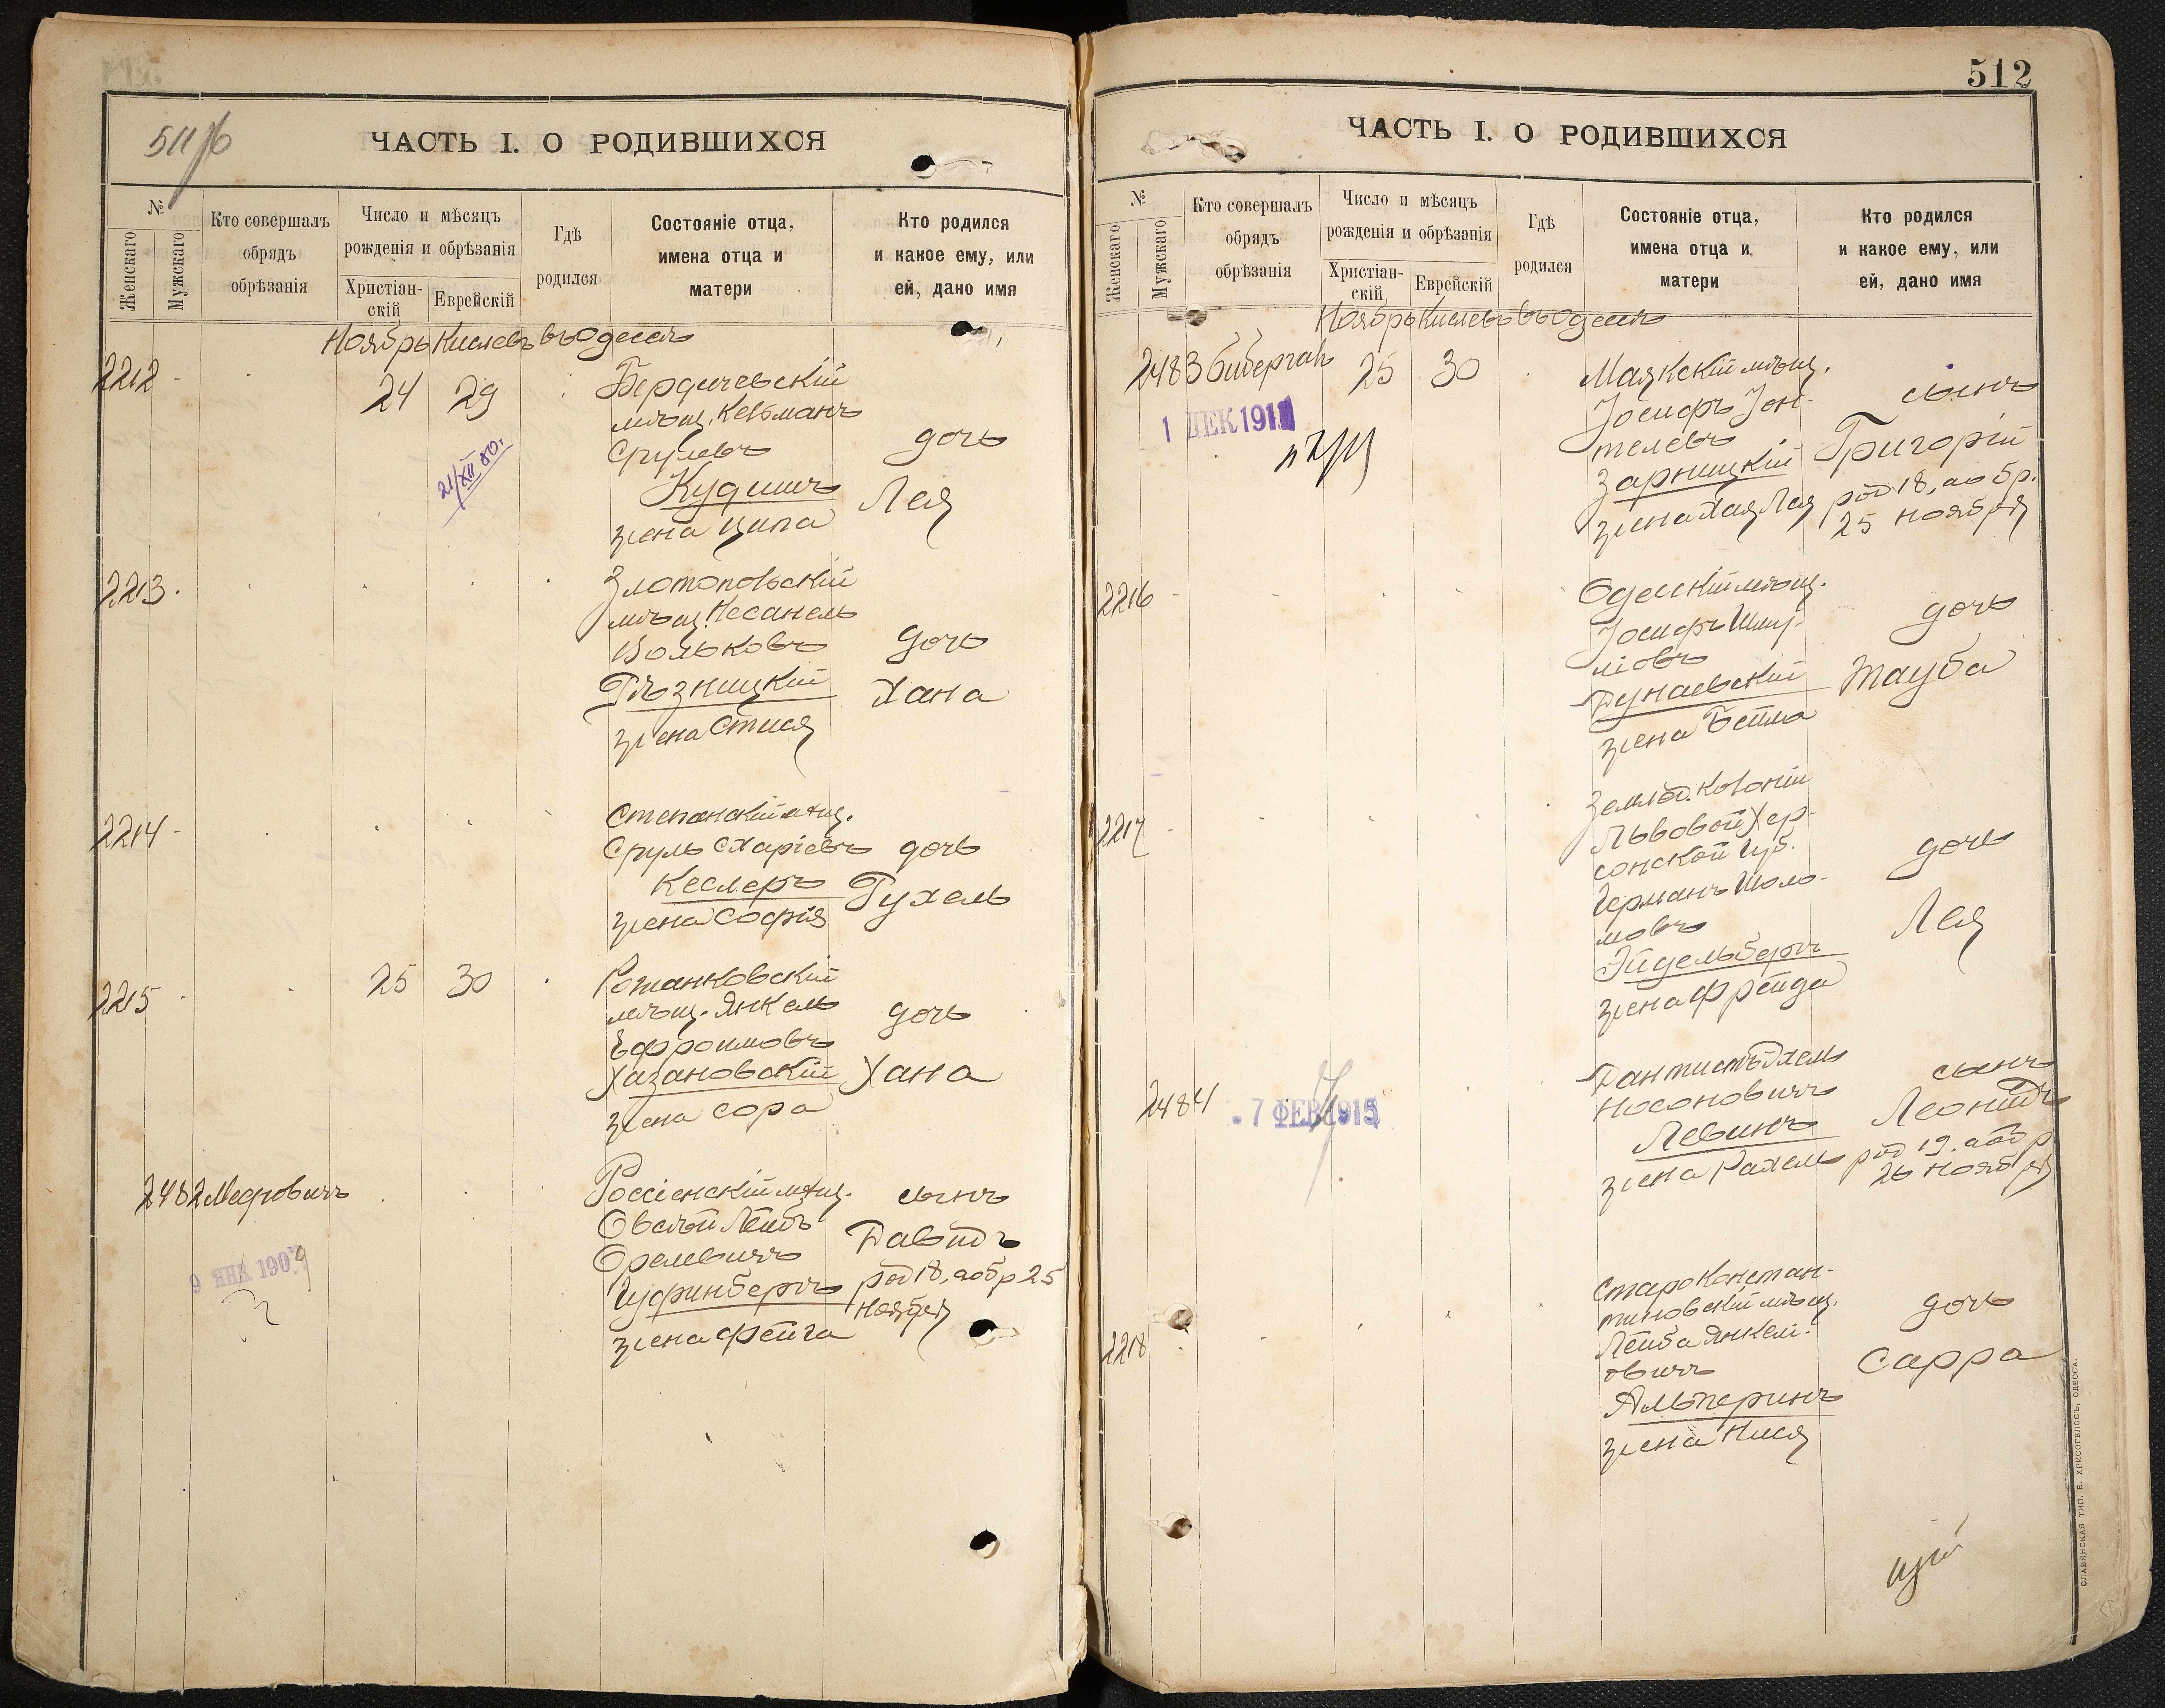 511/б
ЧАСТЬ I. О РОДИВШИХСЯ
№
Женскаго
Мужскаго
Кто совершалъ
обрядъ
обрѣзанія
Число и мѣсяцъ
рожденія и обрѣзанія
Христіан-
скій
Еврейскій
Гдѣ
родился
Состояніе отца,
имена отца и
матери
Кто родился
и какое ему, или
ей, дано имя
Ноябрь Кислевъ въ Одессѣ
2212
24 29
21/XII 80.
Бердичевскій
мѣщ. Кельманъ
Срулевъ
Кудишъ
жена Ципа
дочь
Лея
2213
Златопольскій
мѣщ. Несанель
Вольковъ
Рѣзницкій
жена Стися
дочь
Хана
2214
Степанскій мѣщ.
Сруль Схаріевъ
Кеслеръ
жена Софія
дочь
Рухель
2215
25 30
Романковскій
мѣщ. Янкель
Ефроимовъ
Хазановскій
жена Сора
дочь
Хана
2482 Меѳровичъ
9 ЯНВ 1909
Россіенскій мѣщ.
Овсѣй Лейбъ
Орелевичъ
Гуфинбергъ
жена Фейга
сынъ
Давидъ
род 18, а обр 25
ноября
512
ЧАСТЬ I. О РОДИВШИХСЯ
№
Женскаго
Мужскаго
Кто совершалъ
обрядъ
обрѣзанія
Число и мѣсяцъ
рожденія и обрѣзанія
Христіан-
скій
Еврейскій
Гдѣ
родился
Состояніе отца,
имена отца и
матери
Кто родился
и какое ему, или
ей, дано имя
Ноябрь Кислевъ въ Одессѣ
2483 Бибергалъ
25 30
1 ДЕК 1911
Маякскій мѣщ.
Іосифъ Іон-
телевъ
Зарницкій
жена Хая Лея
сынъ
Григорій
род 18, а обр.
25 ноября
2216
Одесскій мѣщ.
Іосифъ Шму-
ліовъ
Дунаевскій
жена Бейла
дочь
Тауба
2217
Землед. колоніи
Львовой Хер-
сонской Губ.
Германъ Шоло-
мовъ
Эйдельбергъ
жена Фрейда
дочь
Лея
2484
7 ФЕВ 1915
Дантистъ Ихель
Носоновичъ
Левинъ
жена Рахель
сынъ
Леонидъ
род 19. а обр
26 ноября
2218
Староконстан-
тиновскій мѣщ.
Лейба Янкел-
овичъ
Альперинъ
жена Нися
дочь
Сарра
СЛАВЯНСКАЯ ТИП. Е. ХРИСОГЕЛОСЪ, ОДЕССА.